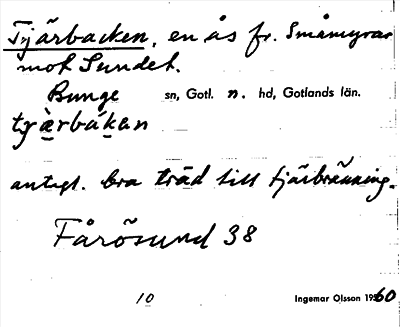 Tjärbacken, en ås fr. Småmyrar
mot Sundet.
Bunge sn, Gotl. n. hd, Gotlands län.
tyärbákan
antagl. bra träd till tjärbränning.
Fårösund 38
10 Ingemar Olsson 1960